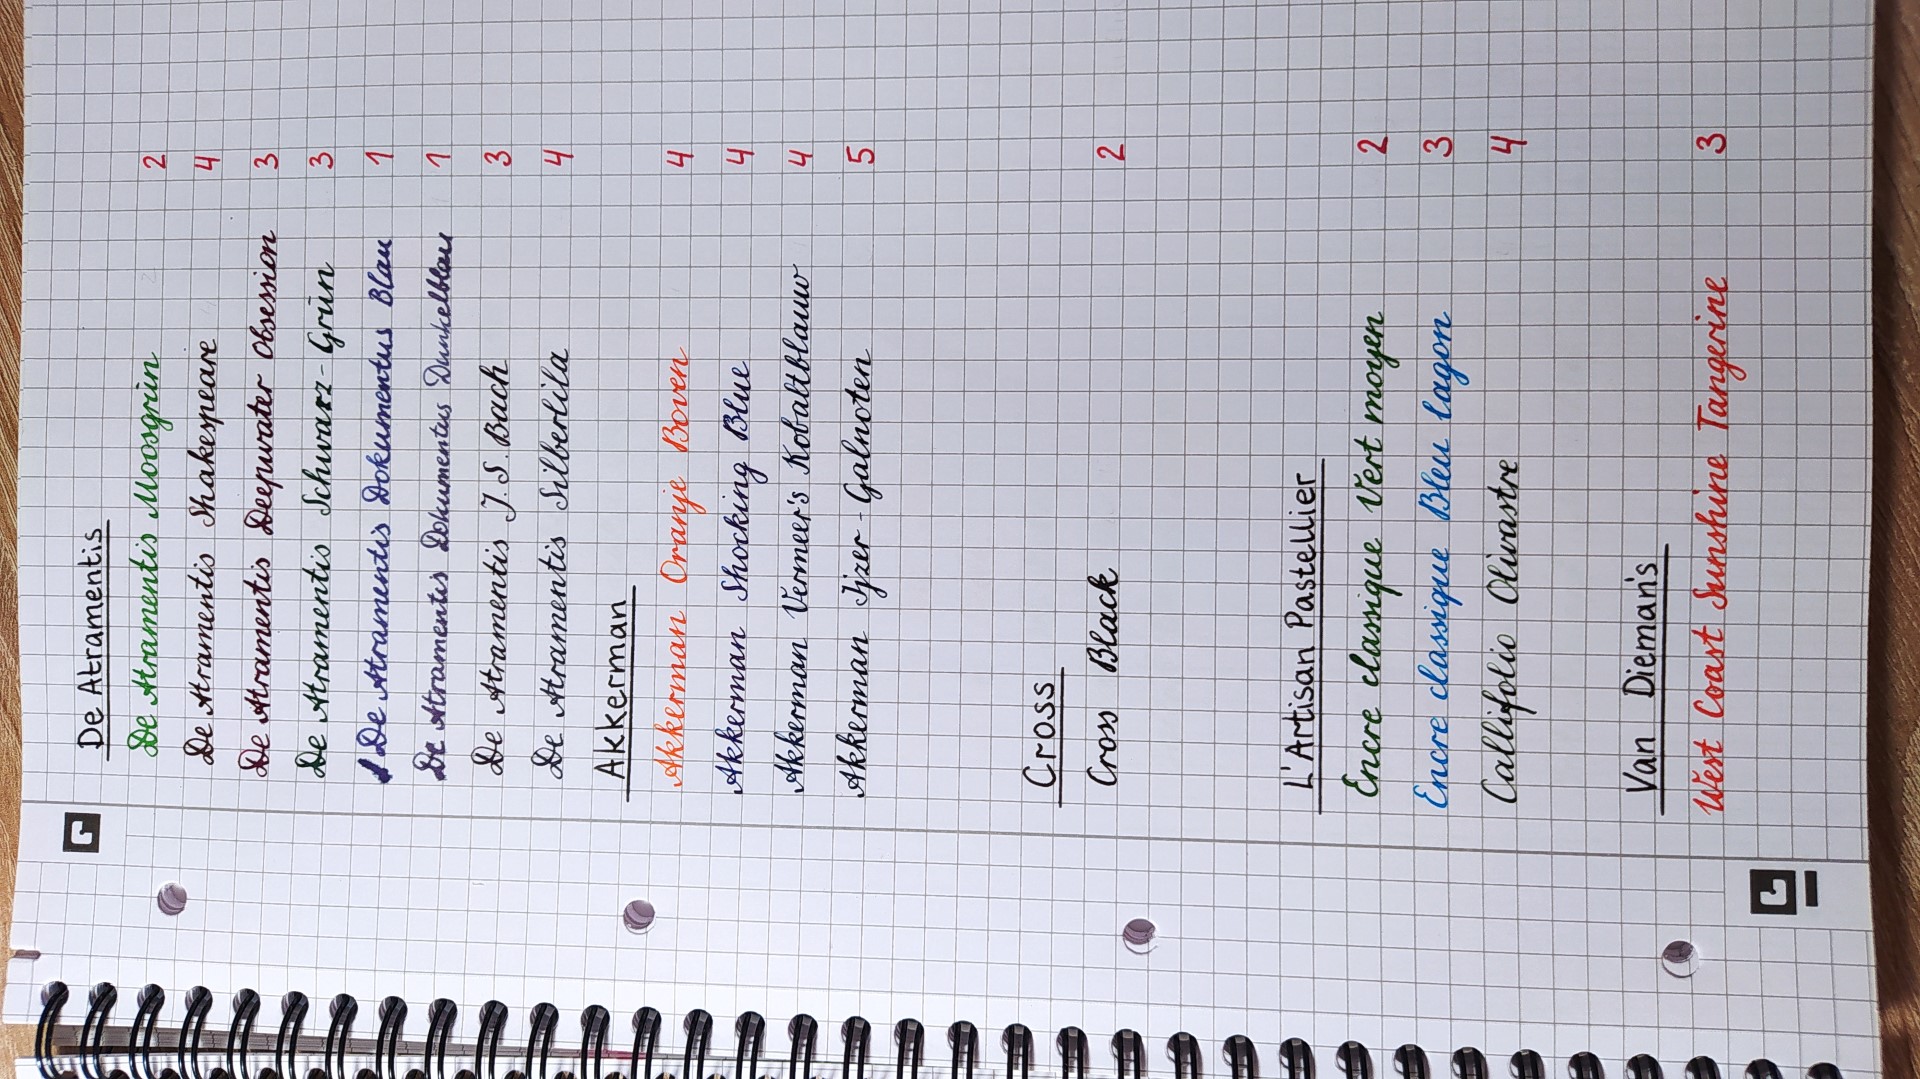 De Atramentis
De Atramentis Moosgrün 2
De Atramentis Shakespeare 4
De Atramentis Deepwater Obsession 3
De Atramentis Schwarz-Grün 3
De Atramentis Dokumentus Blau 1
De Atramentis Dokumentus Dunkelblau 1
De Atramentis J.S. Bach 3
De Atramentis Silberlila 4
Akkerman
Akkerman Oranje Boven 4
Akkerman Shocking Blue 4
Akkerman Vermeer's Kobaltblauw 4
Akkerman Ijzer-Galnoten 5
Cross
Cross Black 2
L'Artisan Pastellier
Encre classique Vert moyen 2
Encre classique Bleu lagon 3
Callifolio Olivastre 4
Van Dieman's
West Coast Sunshine Tangerine 3